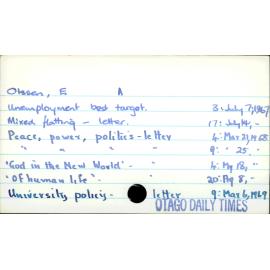 Olssen, E A
Unemployment best target. 3: July 7, 1967
Mixed flatting - letter. 17: July 14, -
Peace, power, politics - letter 4: Mar 21, 1968
" " " " 9: " 25, -
'God in the New World' - " 4: My 18, "
'Of human life' - " 20: Ag 8, -
University policy - letter 9: Mar 6, 1969
OTAGO DAILY TIMES